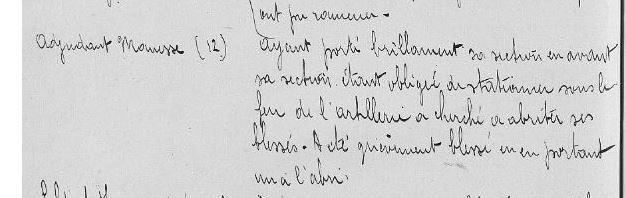 ont pu ramener.
Adjudant Mousse (12) Ayant porté brillament sa section en avant
sa section étant obligée de stationner sous le
feu de l'artillerie a cherché a abriter ses
blessés. A été grièvement blessé en en portant
un à l'abri.